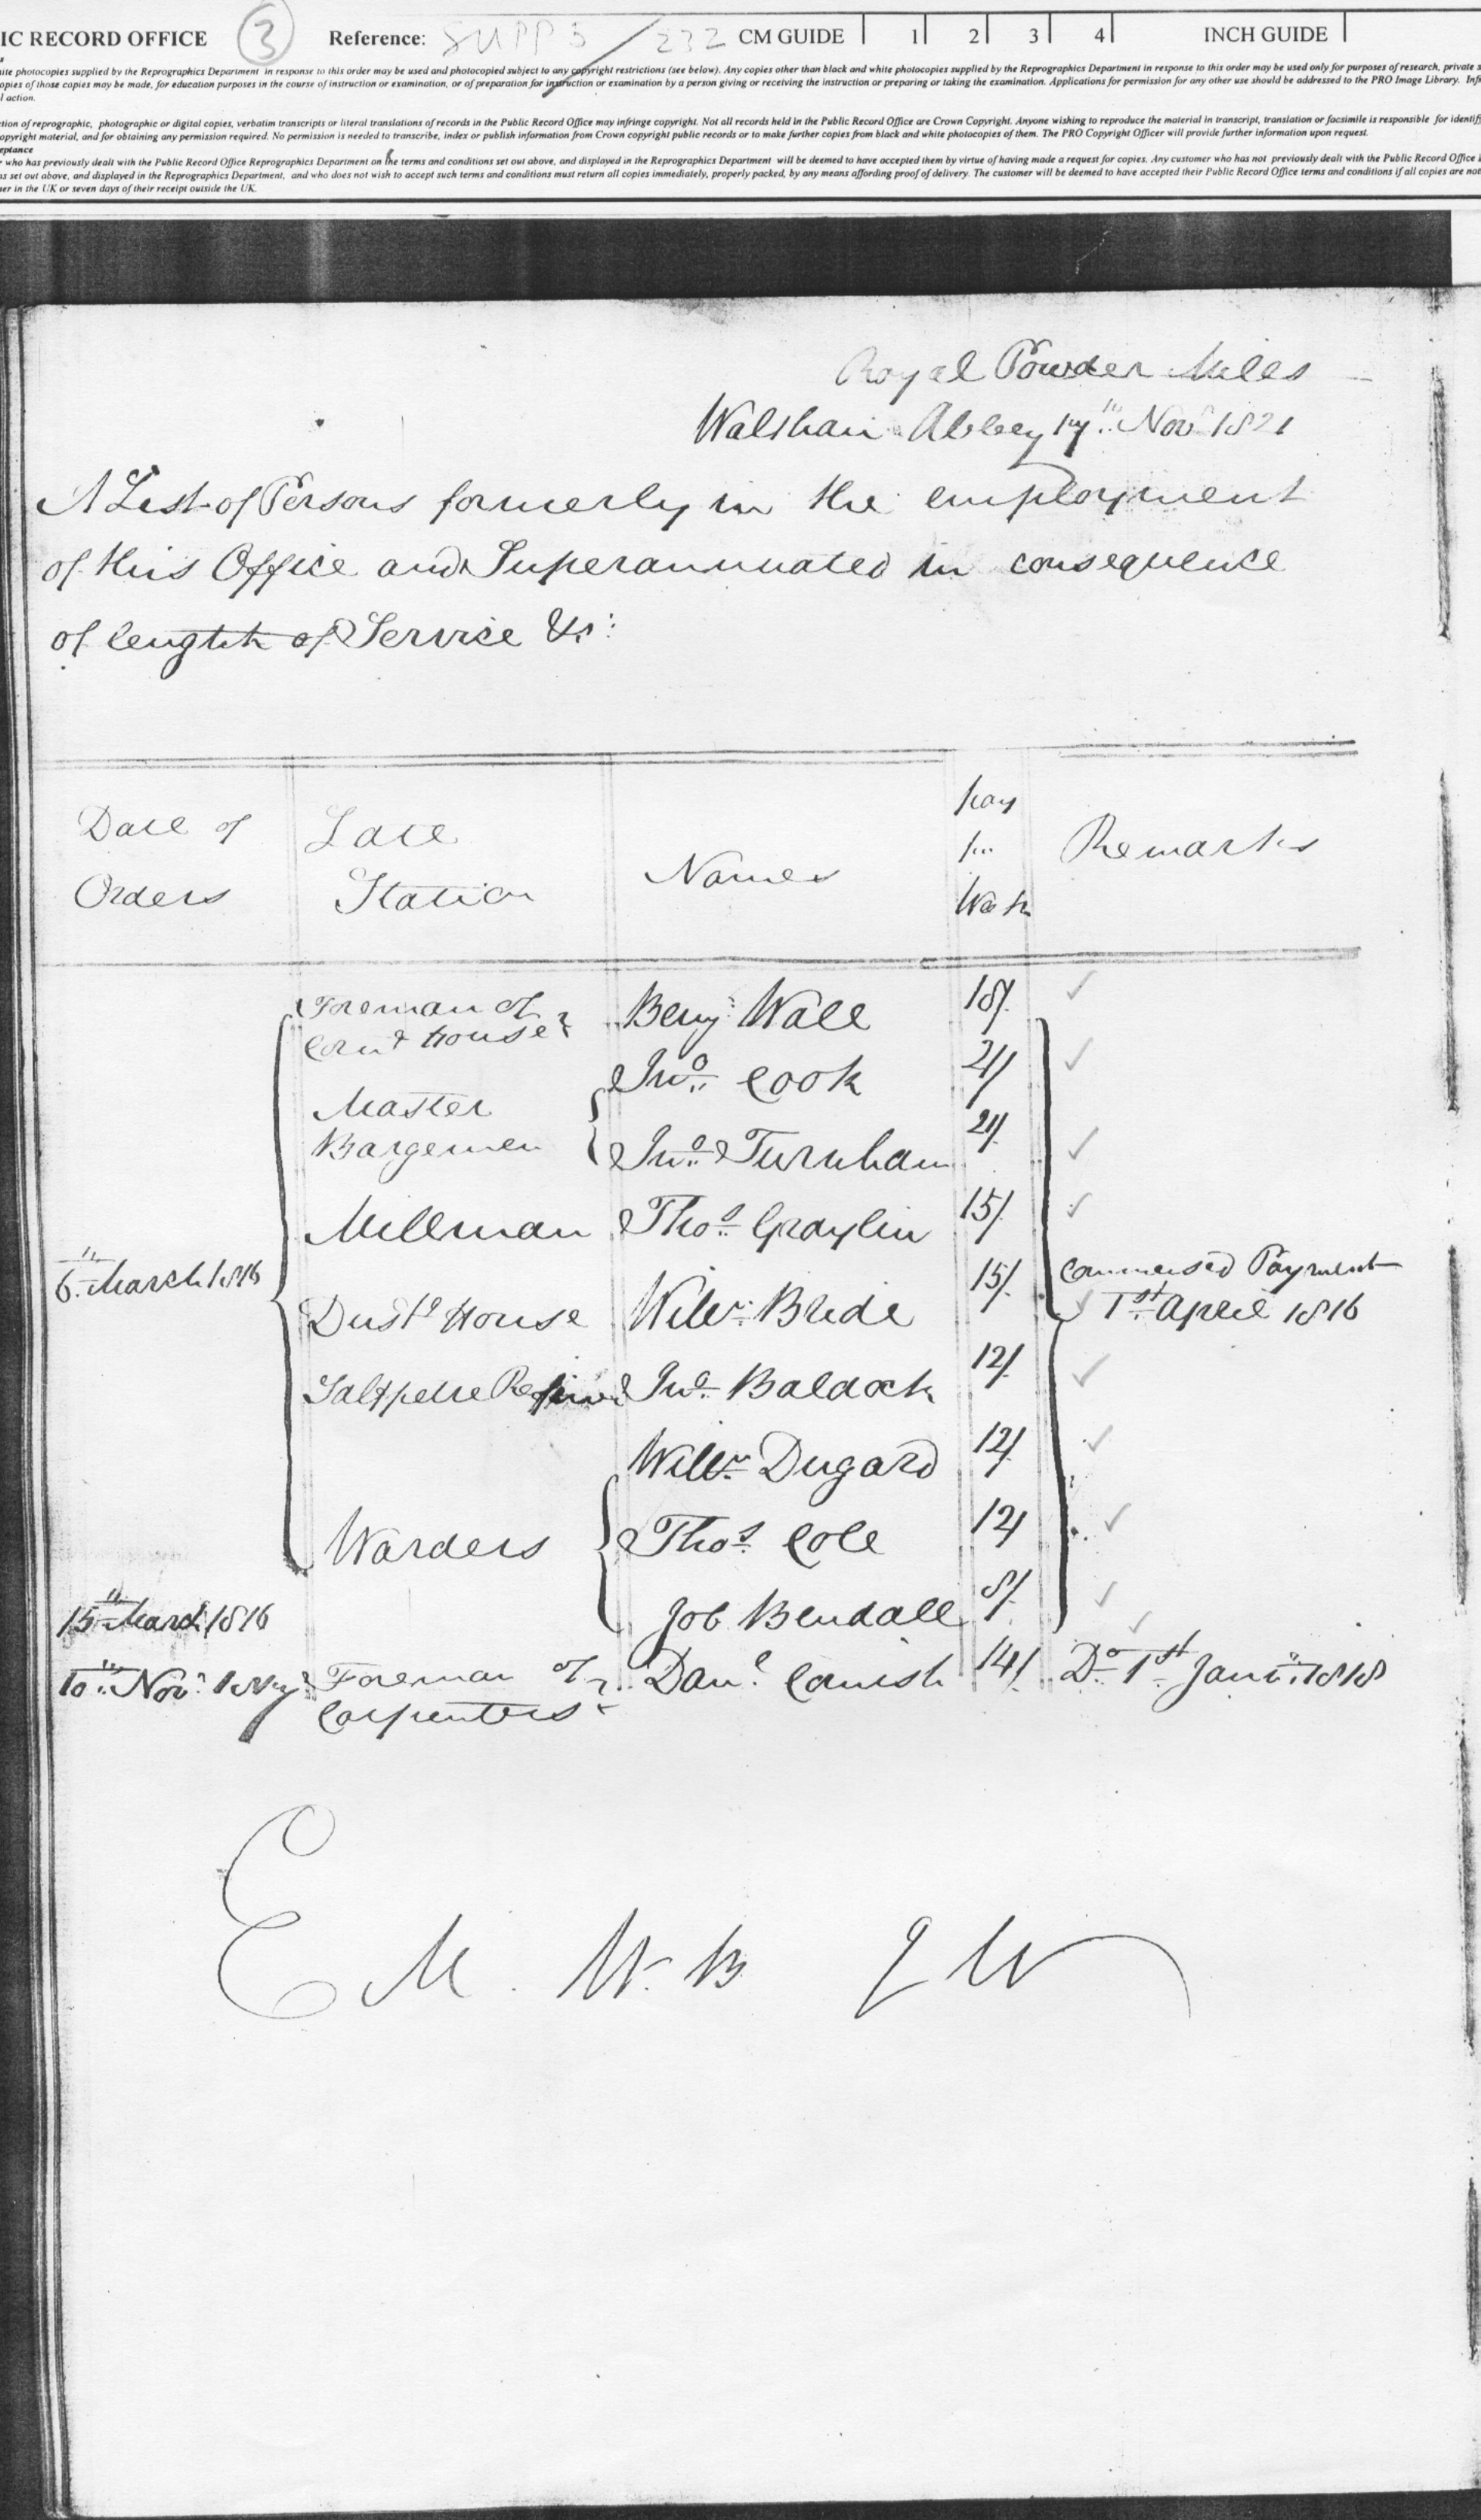 IC RECORD OFFICE 3 Reference: SUPP 5 / 232 CM GUIDE 1 2 3 4 INCH GUIDE
ite photocopies supplied by the Reprographics Department in response to this order may be used and photocopied subject to any copyright restrictions (see below). Any copies other than black and white photocopies supplied by the Reprographics Department in response to this order may be used only for purposes of research, private s
opies of those copies may be made, for education purposes in the course of instruction or examination, or of preparation for instruction or examination by a person giving or receiving the instruction or preparing or taking the examination. Applications for permission for any other use should be addressed to the PRO Image Library. Inf
l action.
tion of reprographic, photographic or digital copies, verbatim transcripts or literal translations of records in the Public Record Office may infringe copyright. Not all records held in the Public Record Office are Crown Copyright. Anyone wishing to reproduce the material in transcript, translation or facsimile is responsible for identif
opyright material, and for obtaining any permission required. No permission is needed to transcribe, index or publish information from Crown copyright public records or to make further copies from black and white photocopies of them. The PRO Copyright Officer will provide further information upon request.
eptance
r who has previously dealt with the Public Record Office Reprographics Department on the terms and conditions set out above, and displayed in the Reprographics Department will be deemed to have accepted them by virtue of having made a request for copies. Any customer who has not previously dealt with the Public Record Office
as set out above, and displayed in the Reprographics Department, and who does not wish to accept such terms and conditions must return all copies immediately, properly packed, by any means affording proof of delivery. The customer will be deemed to have accepted their Public Record Office terms and conditions if all copies are not
er in the UK or seven days of their receipt outside the UK.
Royal Powder Mills
Waltham Abbey 17th Novr 1821
A List of Persons formerly in the employment
of this Office and Superannuated in consequence
of length of Service &c:
Date of Orders Late Station Names pay pr Week Remarks
Foreman of Corng House Benj: Wall 18/
Master Bargemen Jno. Cook 21/
Jno. Turnham 21/
Millman Thos. Graylin 15/
6th March 1816 Dustg House Willm: Bride 15/ Commenced Payment 1st April 1816
Saltpetre Refiner Jno. Baldock 12/
Willm. Dugard 12/
Warders Thos. Cole 12/
15th March 1816 Job Bendall 8/
10th Novr 1817 Foreman of Carpenters Danl. Cornish 14/ Do 1st Jany 1818
E M. W. B J W